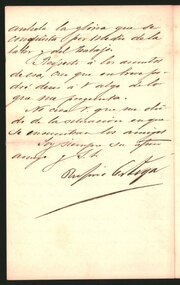 anhelo la gloria que se
conquista por medio de la
labor y del trabajo.
Respecto á los asuntos
de esa, creo que en breve po-
dré decir á V. algo de lo
que me pregunta.
No crea V. que me olvi-
do de la situación en que
se encuentran los amigos
Soy siempre su afmo
amigo y S. S.
Rufino Ortega